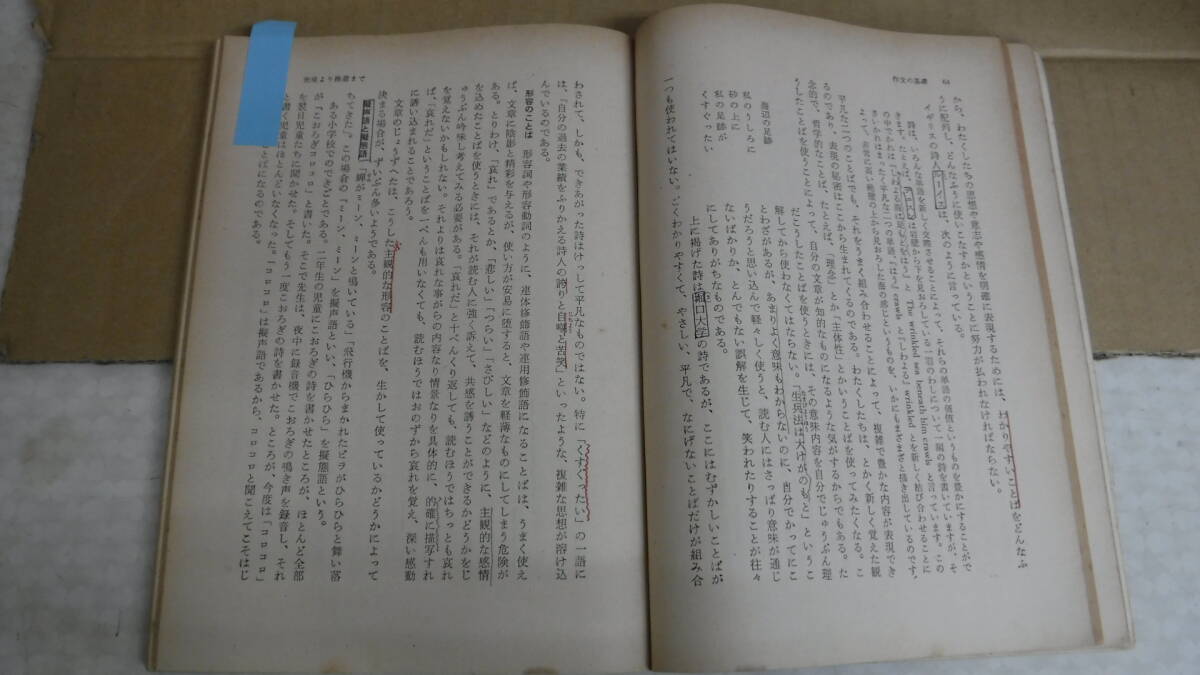 作文の基礎 64
から、わたくしたちの思想や意志や感情を明確に表現するためには、わかりやすいことばをどんなふ
うに配列し、どんなふうに使いこなすかということに努力が払われなければならない。
イギリスの詩人ルーイスは、次のように言っている。
詩は、いろんな単語を新しく交際させることによって、それらの単語の価値というものを豊かにすることがで
きます。たとえば、テニスンは岩壁から下を見おろしている一羽のわしについて一編の詩を書いていますが、そ
の中でかれは「しわよる海は足もとをはう」と The wrinkled sea beneath him crawls と言っています。この
きいかれはまったく平凡な二つの単語、「はう」crawls と「しわよる」wrinkled とを新しく結び合わせることに
よって、非常に高い絶壁の上から見おろした海の感じというものを、いかにもまざまざと描き出しているのです。
平凡な二つのことばでも、それをうまく組み合わせることによって、複雑で豊かな内容が表現でき
るのであり、表現の秘密はここから生まれてくるのである。わたくしたちは、とかく新しく覚えた観
念的で、哲学的なことば、たとえば、「理念」とか「主体性」とかということばを使ってみたくなる。こ
うしたことばを使うことによって、自分の文章が知的なものになるような気がするからでもある。た
だこうしたことばを使うときには、その意味内容を自分でじゅうぶん理
解してから使わなくてはならない。「生兵法は大けがのもと」というこ
とわざがあるが、あまりよく意味もわからないのに、自分でかってにこ
うだろうと思い込んで軽々しく使うと、読む人にはさっぱり意味が通じ
ないばかりか、とんでもない誤解を生じて、笑われたりすることが往々
にしてありがちなものである。
海辺の足跡
私のうしろに
砂の上に
私の足跡が
くすぐったい
上に掲げた詩は堀口大学の詩であるが、ここにはむずかしいことばが
一つも使われてはいない。ごくわかりやすくて、やさしい、平凡で、なにげないことばだけが組み合
わされて、しかも、できあがった詩はけっして平凡なものではない。特に「くすぐったい」の一語に
は、「自分の過去の業績をふりかえる詩人の誇りと自嘲と苦笑」といったような、複雑な思想が溶け込
んでいるのである。
形容のことば 形容詞や形容動詞のように、連体修飾語や連用修飾語になることばは、うまく使え
ば、文章に陰影と精彩を与えるが、使い方が安易に堕すると、文章を軽薄なものにしてしまう危険が
ある。とりわけ、「哀れ」であるとか、「悲しい」「つらい」「さびしい」などのように、主観的な感情
を込めたことばを使うときには、それが読む人に強く訴えて、共感を誘うことができるかどうかをじ
ゅうぶん吟味し考えてみる必要がある。「哀れだ」と十ぺんくり返しても、読むほうではちっとも哀れ
を覚えないかもしれない。それよりは哀れな事がらの内容なり情景なりを具体的に、的確に描写すれ
ば、「哀れだ」ということばを一ぺんも用いなくても、読むほうではおのずから哀れを覚え、深い感動
に誘い込まれることであろう。
文章のじょうずへたは、こうした主観的な形容のことばを、生かして使っているかどうかによって
決まる場合が、ずいぶん多いようである。
擬声語と擬態語 「蟬がミーン、ミーンと鳴いている」「飛行機からまかれたビラがひらひらと舞い落
ちてきた」。この場合の「ミーン、ミーン」を擬声語といい、「ひらひら」を擬態語という。
ある小学校でのできごとである。二年生の児童にこおろぎの詩を書かせたところが、ほとんど全部
が「こおろぎコロコロ」と書いた。そこで先生は、夜中に録音機でこおろぎの鳴き声を録音し、それ
を翌日児童たちに聞かせた。そしてもう一度こおろぎの詩を書かせた。ところが、今度は「コロコロ」
と書く児童はほとんどいなくなった。「コロコロ」は擬声語であるから、コロコロと聞こえてこそはじ
ことばになるのである。